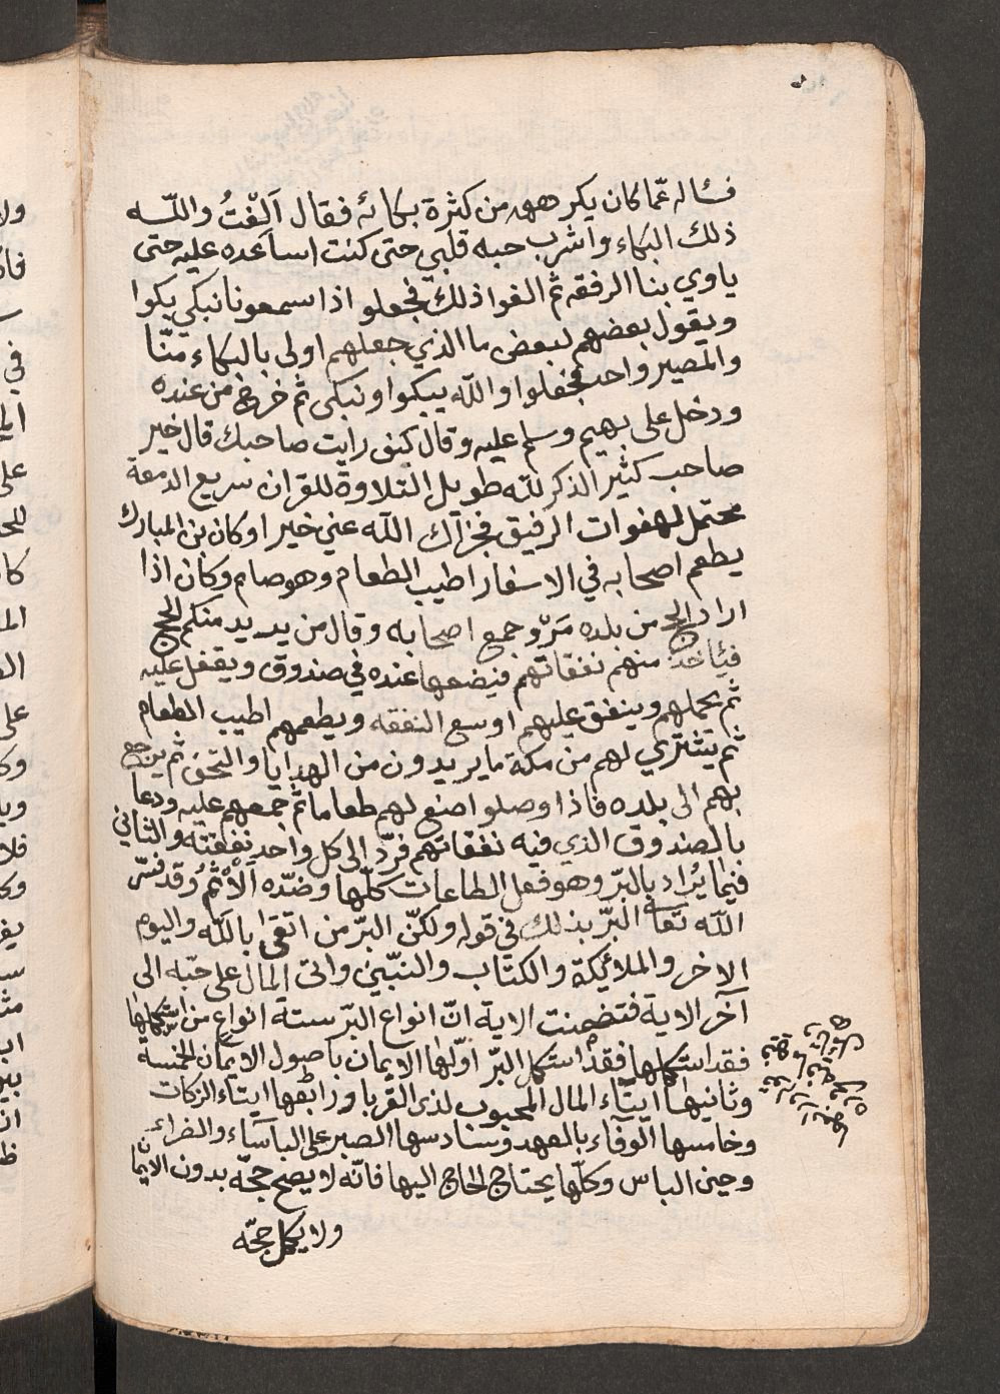 فسأله عمّا كان يكرههه من كثرة بكائه فقال اَلِفْتُ واللّه
ذلك البكاء واشرب حبه قلبي حتى كنت اساعده عليه حتى
ياوي بنا الرفقه ثم الفوا ذلك فجعلو اذا سمعونا نبكي بكوا
ويقول بعضهم لبعض ما الذي جعلهم اولى بالبكاء منّا
والمصير واحد فجعلوا واللّه يبكوا ونبكى ثم خرج من عنده
ودخل على بهيم وسلم عليه وقال كيف رايت صاحبك قال خير
صاحب كثير الذكر للّه طويل التلاوة للقران سريع الدمعة
محتمل لهفوات الرفيق فجزاك اللّه عني خيرا وكان بن المبارك
يطعم اصحابه في الاسفار اطيب الطعام وهو صايم وكان اذا
اراد الحج من بلده مَرْو جمع اصحابه وقال من يريد منكم الحج
فيأخذ منهم نفقاتهم فيضعها عنده في صندوق ويقفل عليه
ثم يحملهم وينفق عليهم اوسع النفقه ويطعمهم اطيب الطعام
ثم يشتري لهم من مكة ما يريدون من الهدايا والتحف ثم يرجع
بهم الى بلده فاذا وصلوا صنع لهم طعاما ثم جمعهم عليه ودعا
بالصندوق الذي فيه نفقاتهم فردّ الى كل واحد نفقته والثاني
فيما يُراد بالبرّ وهو فعل الطاعات كلّها وضدّه اَلْاثمُ وقد فسّر
اللّه تعا البرّ بذلك في قوله ولكنّ البرّ من اتقى باللّه واليوم
الاخر والملائيكة والكتاب والنبّين واتى المال على حبّه الى
آخر الاية فتضمنت الاية انّ انواع البرّ ستة انواع من استكملها
فقد استكملها فقد استكمل البرّ اوّلها الايمان باصول الايمان الخمسة
وثانيها ايتاء المال المحبوب لذى القربا ورابعها ايتاء الزكات
وخامسها الوفاء بالعهد وسادسها الصبر على الباساء والضراء
وحين الباس وكلّها يحتاج الحاج اليها فانّه لا يصح حجّه بدون الايمان
ولا يكمل حجّه